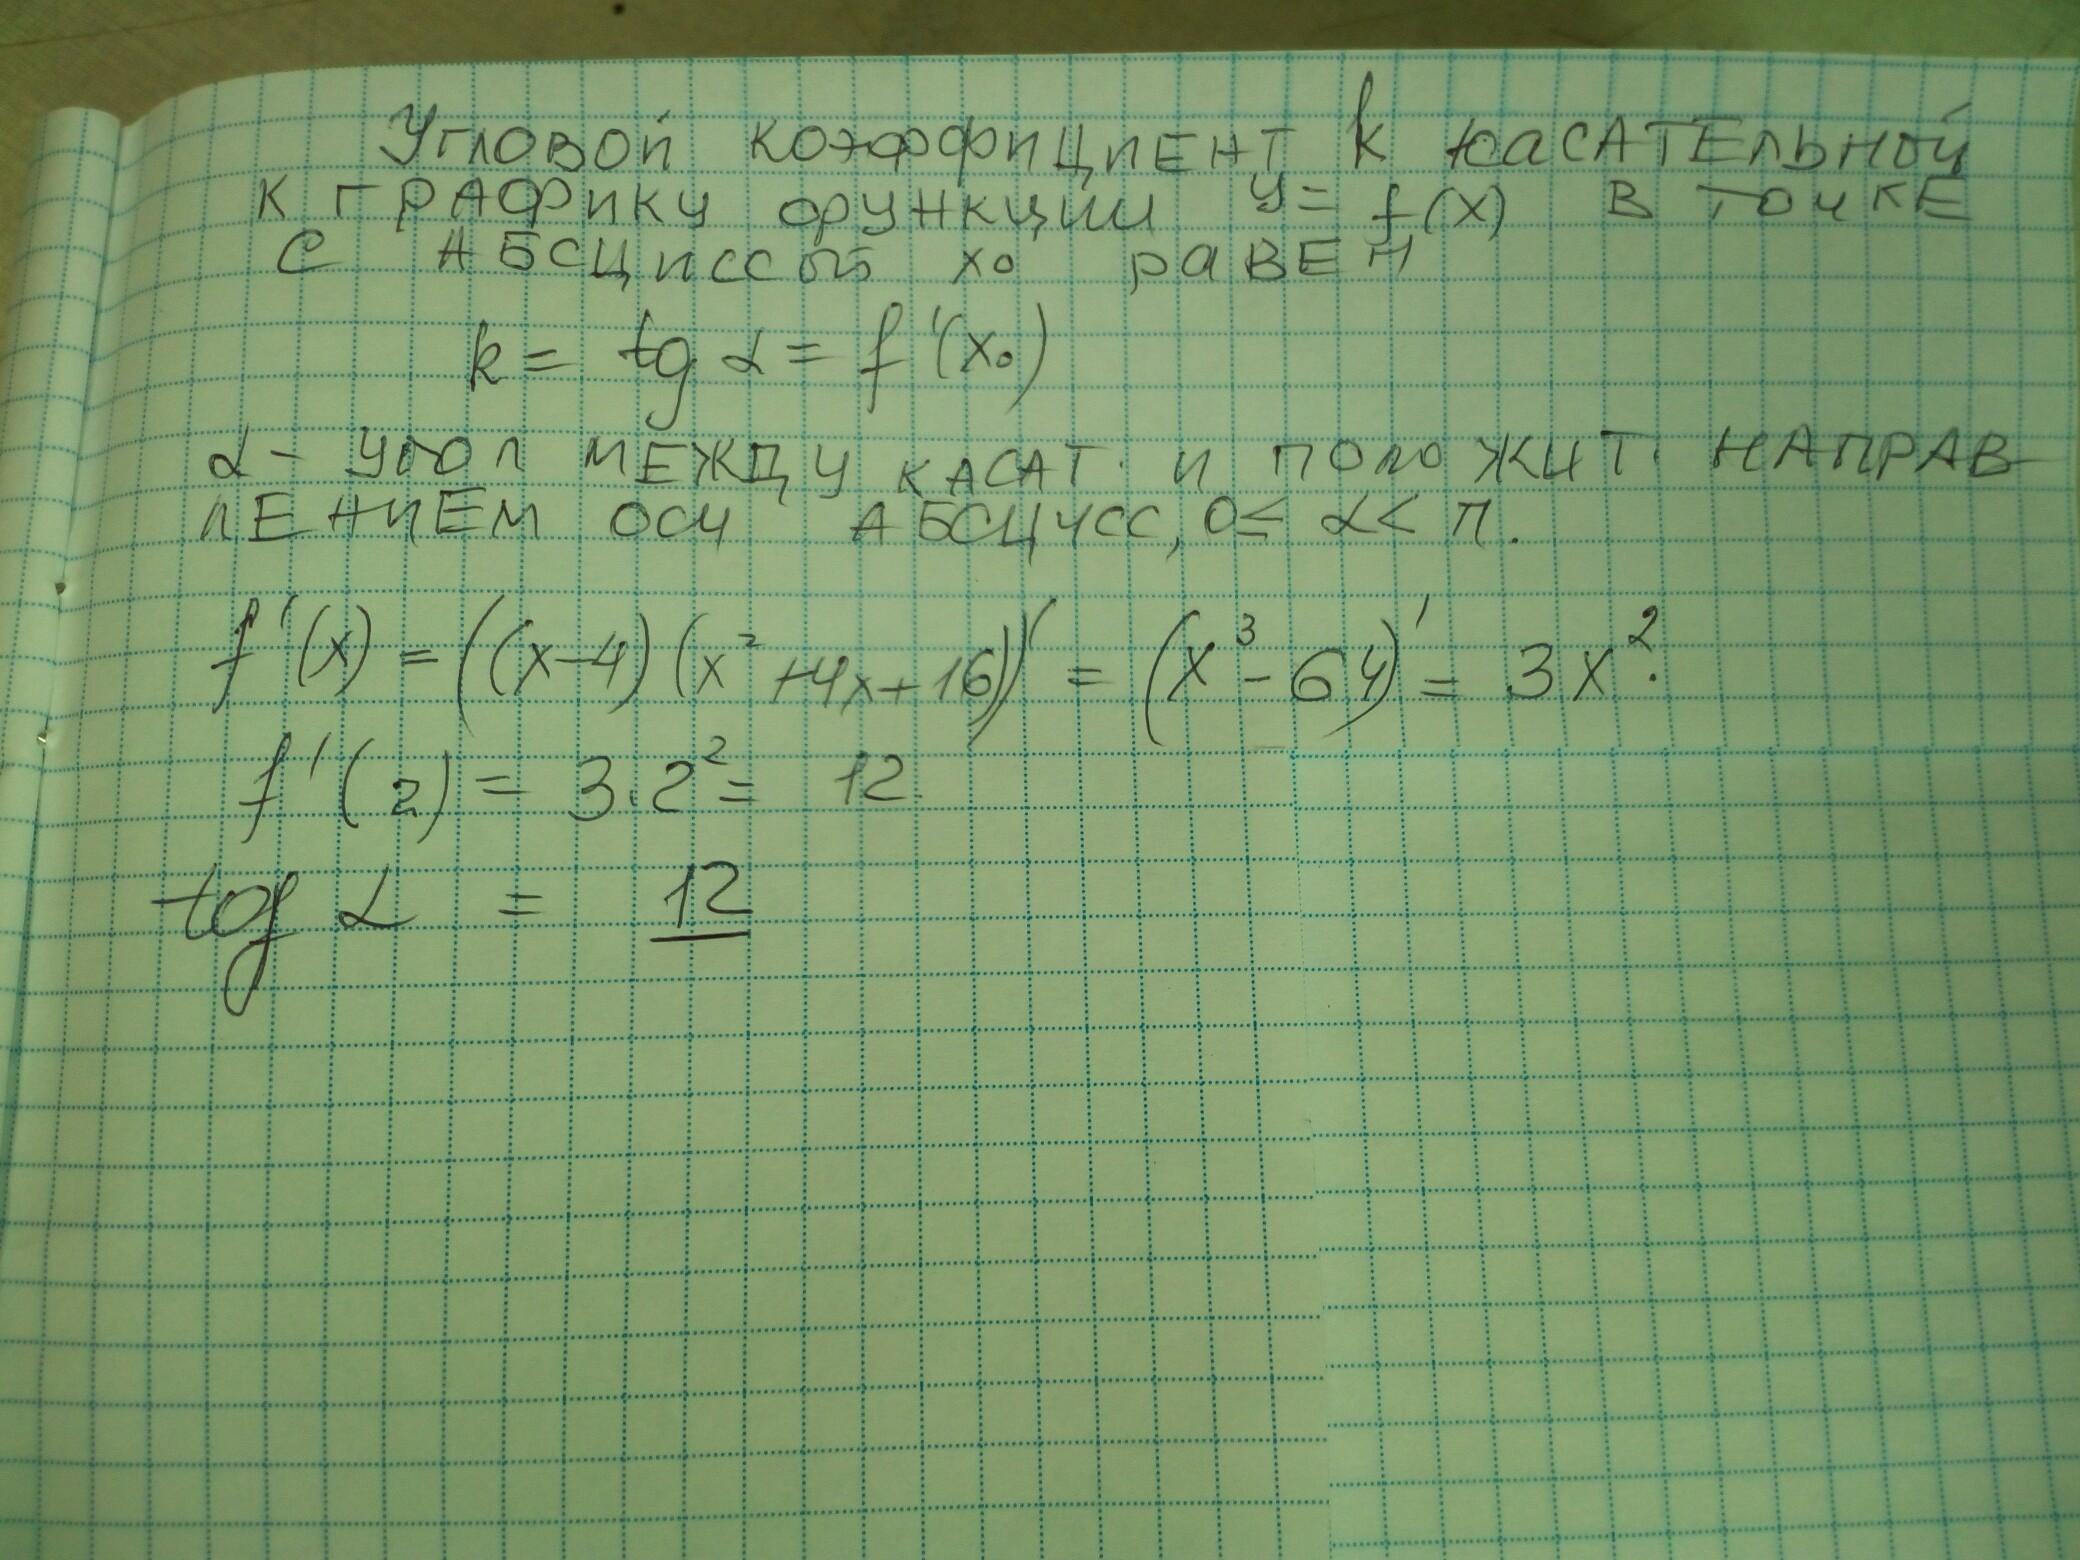 Угловой коэффициент k касательной
к графику функции y = f(x) в точке
с абсциссой x₀ равен
k = tg α = f'(x₀)
α - угол между касат. и положит. направ
лением оси абсцисс, 0 ≤ α < π.
f'(x) = ((x-4)(x²+4x+16))' = (x³-64)' = 3x².
f'(2) = 3·2² = 12.
tg α = 12